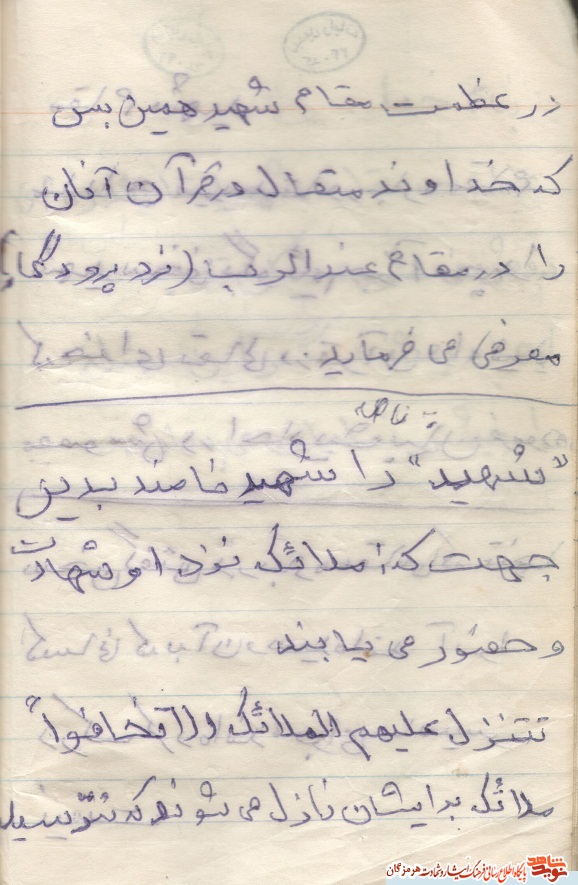 در عظمت مقام شهید همین بس
که خداوند متعال در قرآن آنان
را در مقام عند الرب (نزد پروردگار)
معرفی می فرماید.
"شهید" را شهید نامند بدین
جهت که: ملائک نزد او شهادت
و حضور می یابند
تتنزل علیهم الملائک الا تخافوا"
ملائک برایشان نازل می شوند که نترسید
نوید شاهد
پایگاه اطلاع رسانی فرهنگ ایثار و شهادت هرمزگان